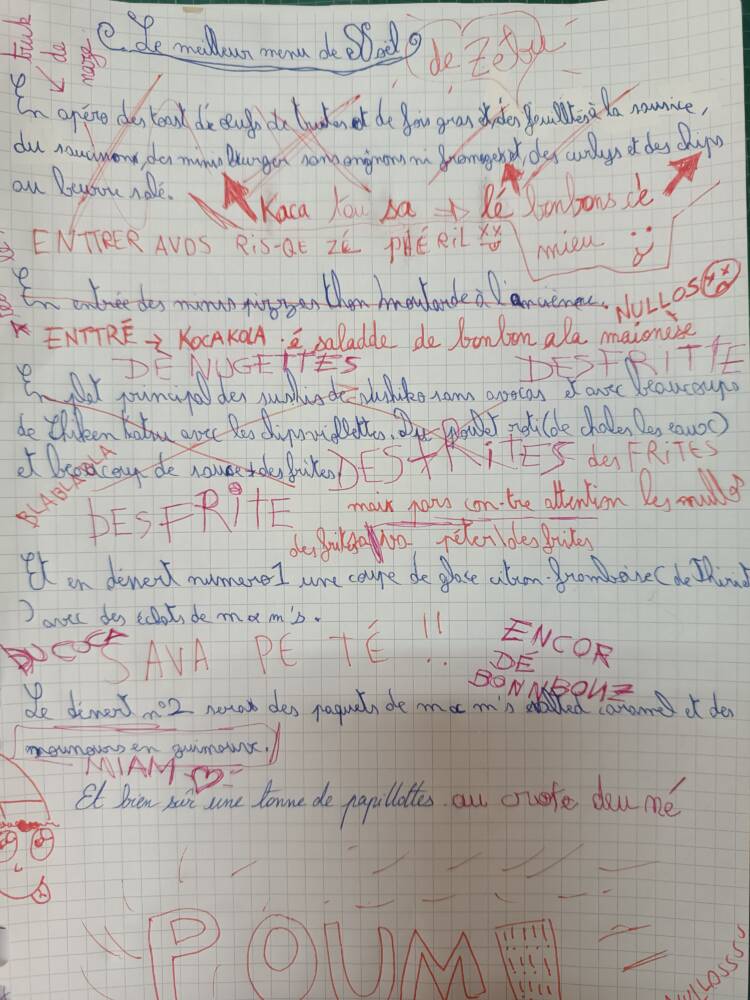 truk de naze
Le meilleur menu de Noël de Zebu
En apéro des toast d'œufs de truites et de fois gras et, des feuilltés à la saucisse,
du saucissons, des minis burger sans oignons ni fromages et, des curlys et des chips
au beurre salé.
Kaca kou sa → lé bonbons c'é
mieu
ENTTRER AVOS RIS-QE ZÉ PHÉRIL
En entrée des minis pizzas thon moutarde à l'ancienne. NULLOS
ENTTRÉ → KOCAKOLA é saladde de bonbon a la maionèse
DÉ NUGETTES DES FRITTE
En plat principal des sushis de sushiko sans avocas et avec beaucoups
de Chiken katsu avec les chips violettes. Du poulet roti (de chales les eaux)
et beaucoup de sauce + des frites. DES FRITES des FRITES
BLABLABLA
DES FRITE mais pars con-tre attention les nullos
des frites sa va péter des frites
Et en désert numero 1 une coupe de glace citron-framboise (de Thiriet
) avec des éclats de m & m's.
DU COCA SAVA PE TÉ !! ENCOR
DÉ
BONNBONZ
Le désert n°2 seras des paquets de m & m's salted caramel et des
nounours en guimauve.
MIAM
Et bien sûr une tonne de papillottes au crote deu né
POUM !
NULOSSSS